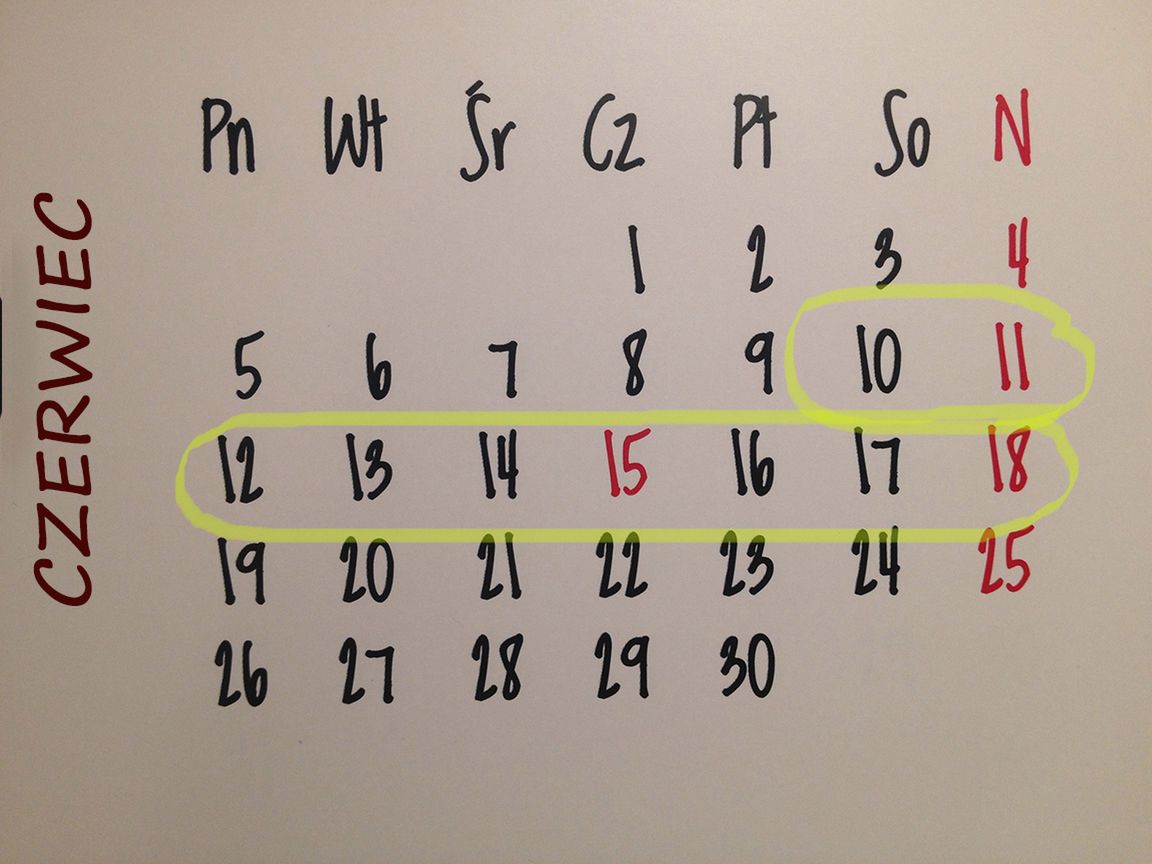 CZERWIEC
Pn Wt Śr Cz Pt So N
1 2 3 4
5 6 7 8 9 10 11
12 13 14 15 16 17 18
19 20 21 22 23 24 25
26 27 28 29 30